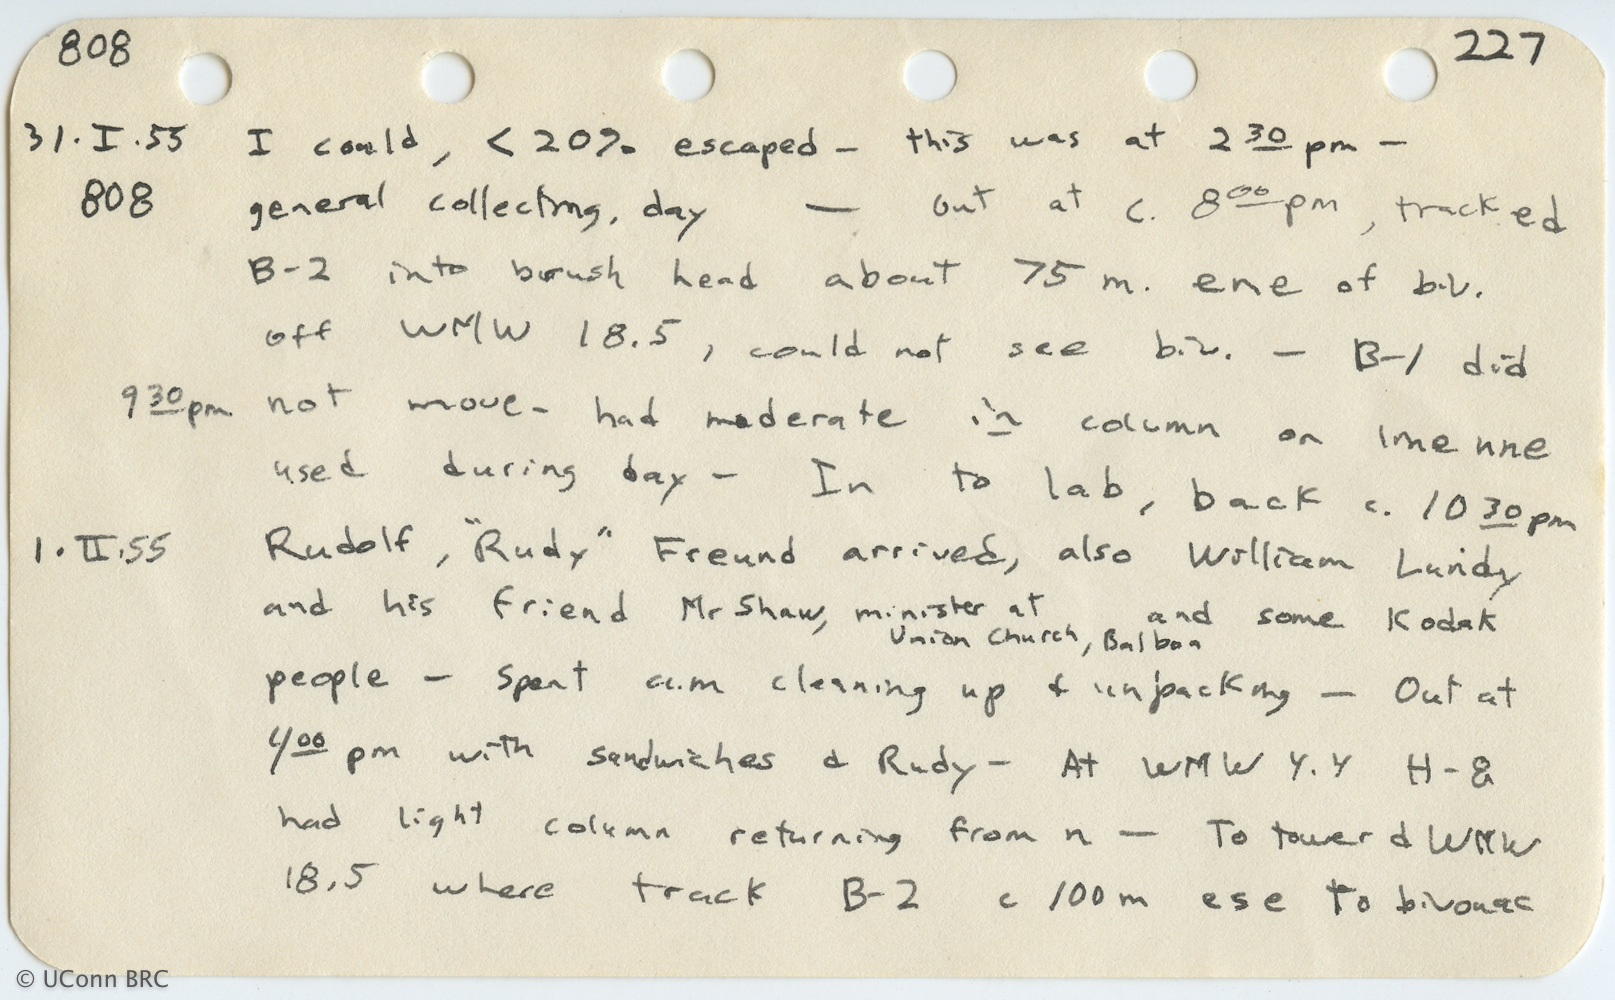 808 227
31.I.55 I could, < 20% escaped – this was at 2 30 pm –
808 general collecting, day — out at c. 8 00 pm, tracked
B-2 into brush head about 75 m. ene of biv.
off WMW 18.5, could not see biv. – B-1 did
9 30 pm not move – had moderate in column on line nne
used during day – In to lab, back c. 10 30 pm
1.II.55 Rudolf, "Rudy" Freund arrived, also William Lundy
and his friend Mr Shaw, minister at Union Church, Balboa and some Kodak
people – spent a.m cleaning up & unpacking – Out at
4 00 pm with sandwiches & Rudy – At WMW 4.4 H-8
had light column returning from n – To tower & WMW
18.5 where track B-2 c 100 m ese to bivouac
© UConn BRC